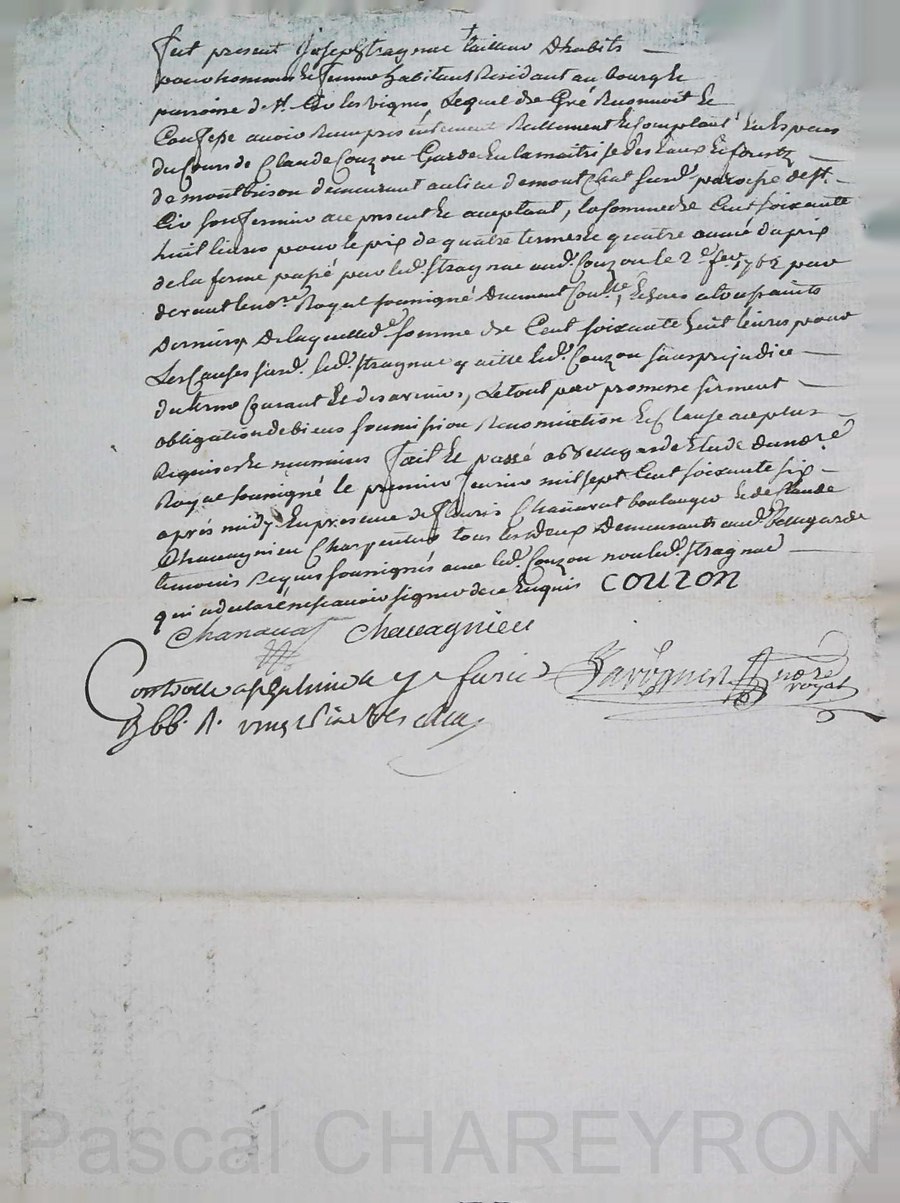 fut present Joseph Stragnac tailleur dhabits
pour hommes & femme habitant Residant au bourg &
parroisse de St. Cir les vignes, Lequel de Gré Reconnoit &
Confesse avoir Reçu presentement Reellement & Comptant En Especes
du Cours de Claude Couzon Garde En la maitrise des Eaux & forests
de montbrison demeurant au lieu de mont Chat surd. parroisse de St.
Cir son fermier ace present & aceptant, la somme de Cent soixante
huit livres pour le prix de quatre termes & quatre année du prix
de la ferme passé par led. Stragnac aud. Couzon le 2e. fevr. 1762 par
devant le nore. Royal soussigné duement Conllé,
derniers De laquelle de. somme de Cent soixante huit livres pour
Les Causes surd. led. Stragnac quitte led. Couzon sans prejudice
du terme Courant & des avenirs, Le tout par promesse serment
obligation de biens soumission Renonciation & Clause a ce plus
Requises & necessaires fait & passé a Bellegarde Etude du nore.
Royal soussigné le premier fevrier mil sept Cent soixante six
aprés midy En presence de fleuris Chanavat boulanger & de Claude
Chavagnieu Charpentier tous les deux Demeurants aud. Bellegarde
temoins Requis soussignés avec led. Couzon non led. Stragnac
qui a declaré ne scavoir signer de ce Enquis COUZON
Chanavat Chavagnieu
Controllé a St Galmier le 9e fevrier
1766 R. vingt six sols
nore royal
Pascal CHAREYRON